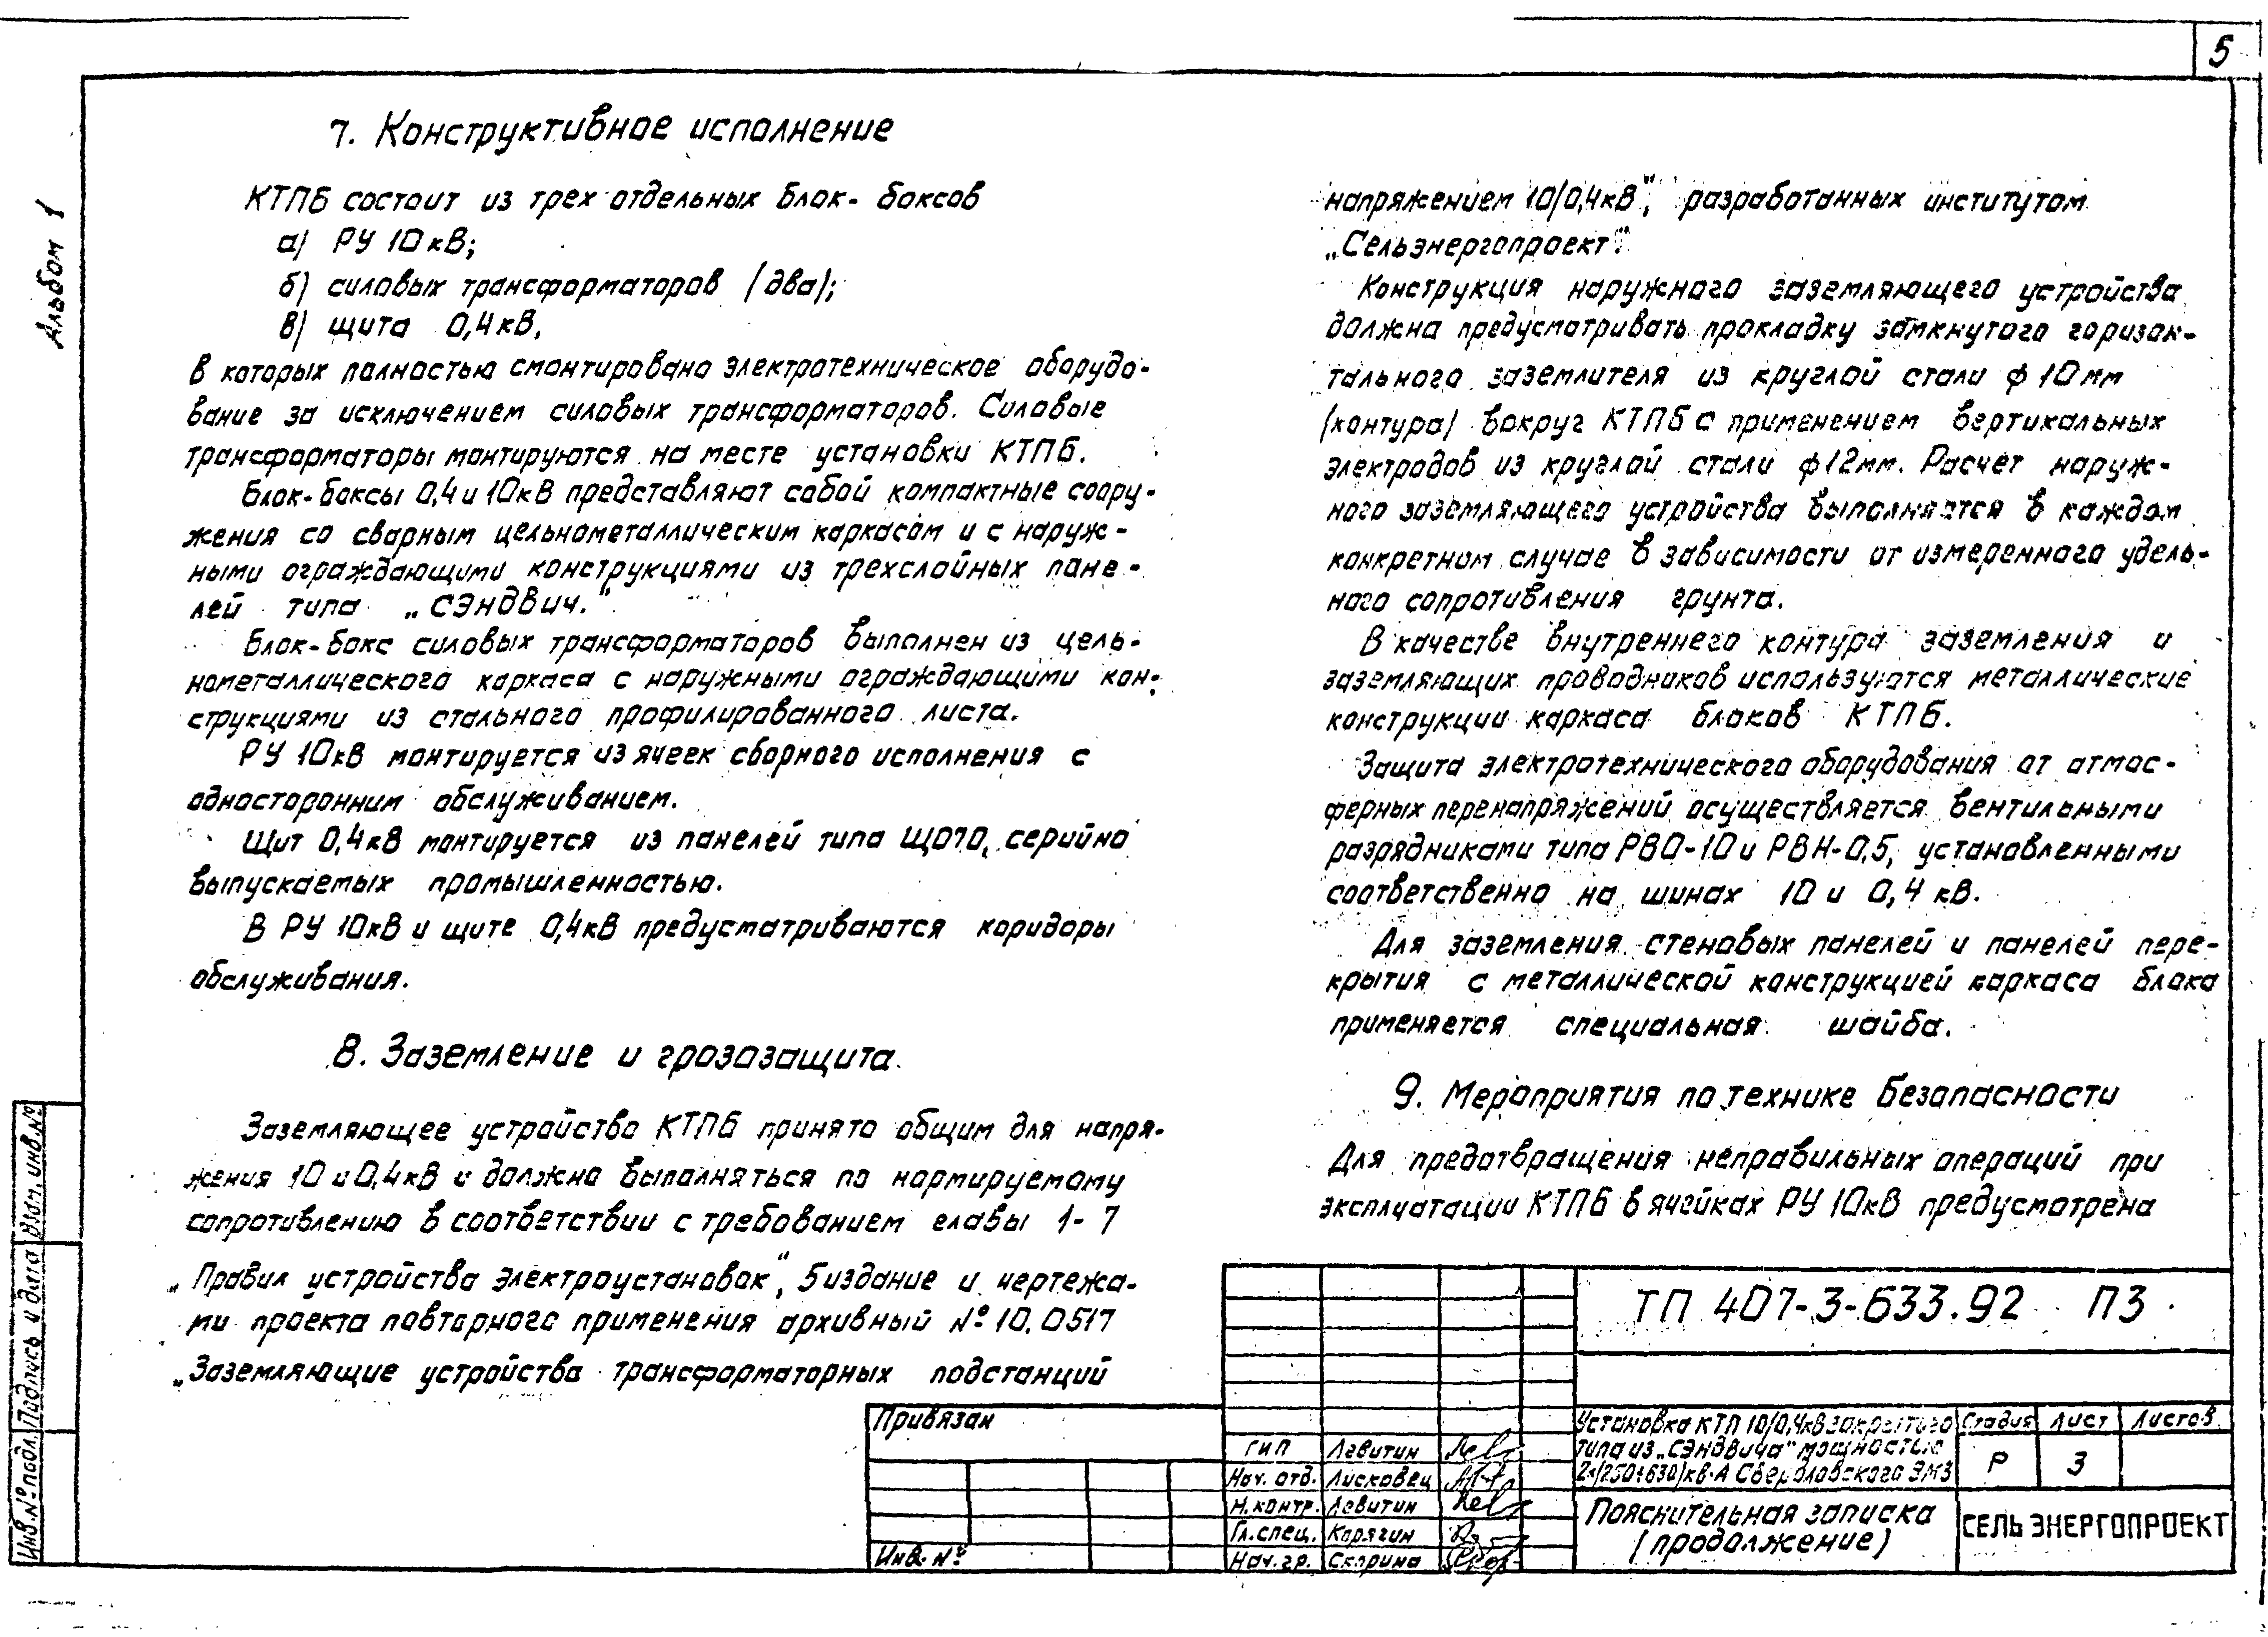 5
Альбом 1
7. Конструктивное исполнение
КТПБ состоит из трех отдельных блок-боксов
а) РУ 10кВ;
б) силовых трансформаторов (два);
в) щита 0,4кВ,
в которых полностью смонтировано электротехническое оборудо-
вание за исключением силовых трансформаторов. Силовые
трансформаторы монтируются на месте установки КТПБ.
Блок-боксы 0,4 и 10кВ представляют собой компактные соору-
жения со сварным цельнометаллическим каркасом и с наруж-
ными ограждающими конструкциями из трехслойных пане-
лей типа „СЭНДВИЧ."
Блок-бокс силовых трансформаторов выполнен из цель-
нометаллического каркаса с наружными ограждающими кон-
струкциями из стального профилированного листа.
РУ 10кВ монтируется из ячеек сборного исполнения с
односторонним обслуживанием.
Щит 0,4кВ монтируется из панелей типа ЩО70, серийно
выпускаемых промышленностью.
В РУ 10кВ и щите 0,4кВ предусматриваются коридоры
обслуживания.
8. Заземление и грозозащита.
Заземляющее устройство КТПБ принято общим для напря-
жения 10 и 0,4кВ и должно выполняться по нормируемому
сопротивлению в соответствии с требованием главы 1-7
„Правил устройства электроустановок", 5 издание и чертежа-
ми проекта повторного применения архивный № 10.0517
„Заземляющие устройства трансформаторных подстанций
напряжением 10/0,4кВ", разработанных институтом
„Сельэнергопроект".
Конструкция наружного заземляющего устройства
должна предусматривать прокладку замкнутого горизон-
тального заземлителя из круглой стали ф 10мм
(контура) вокруг КТПБ с применением вертикальных
электродов из круглой стали ф12мм. Расчет наруж-
ного заземляющего устройства выполняется в каждом
конкретном случае в зависимости от измеренного удель-
ного сопротивления грунта.
В качестве внутреннего контура заземления и
заземляющих проводников используются металлические
конструкции каркаса блоков КТПБ.
Защита электротехнического оборудования от атмос-
ферных перенапряжений осуществляется вентильными
разрядниками типа РВО-10 и РВН-0,5, установленными
соответственно на шинах 10 и 0,4 кВ.
Для заземления стеновых панелей и панелей пере-
крытия с металлической конструкцией каркаса блока
применяется специальная шайба.
9. Мероприятия по технике безопасности
Для предотвращения неправильных операций при
эксплуатации КТПБ в ячейках РУ 10кВ предусмотрена
ТП 407-3-633.92 ПЗ
Привязан
Инв. №
ГИП Левитин
Нач. отд. Лисковец
Н.контр. Левитин
Гл.спец. Карягин
Нач.гр. Скорина
Установка КТП 10/0,4кВ закрытого
типа из „СЭНДВИЧа" мощностью
2х(250÷630)кВ·А Свердловского ЭМЗ
Стадия Лист Листов
Р 3
Пояснительная записка
(продолжение)
СЕЛЬЭНЕРГОПРОЕКТ
Инв. № подл. Подпись и дата Взам. инв. №